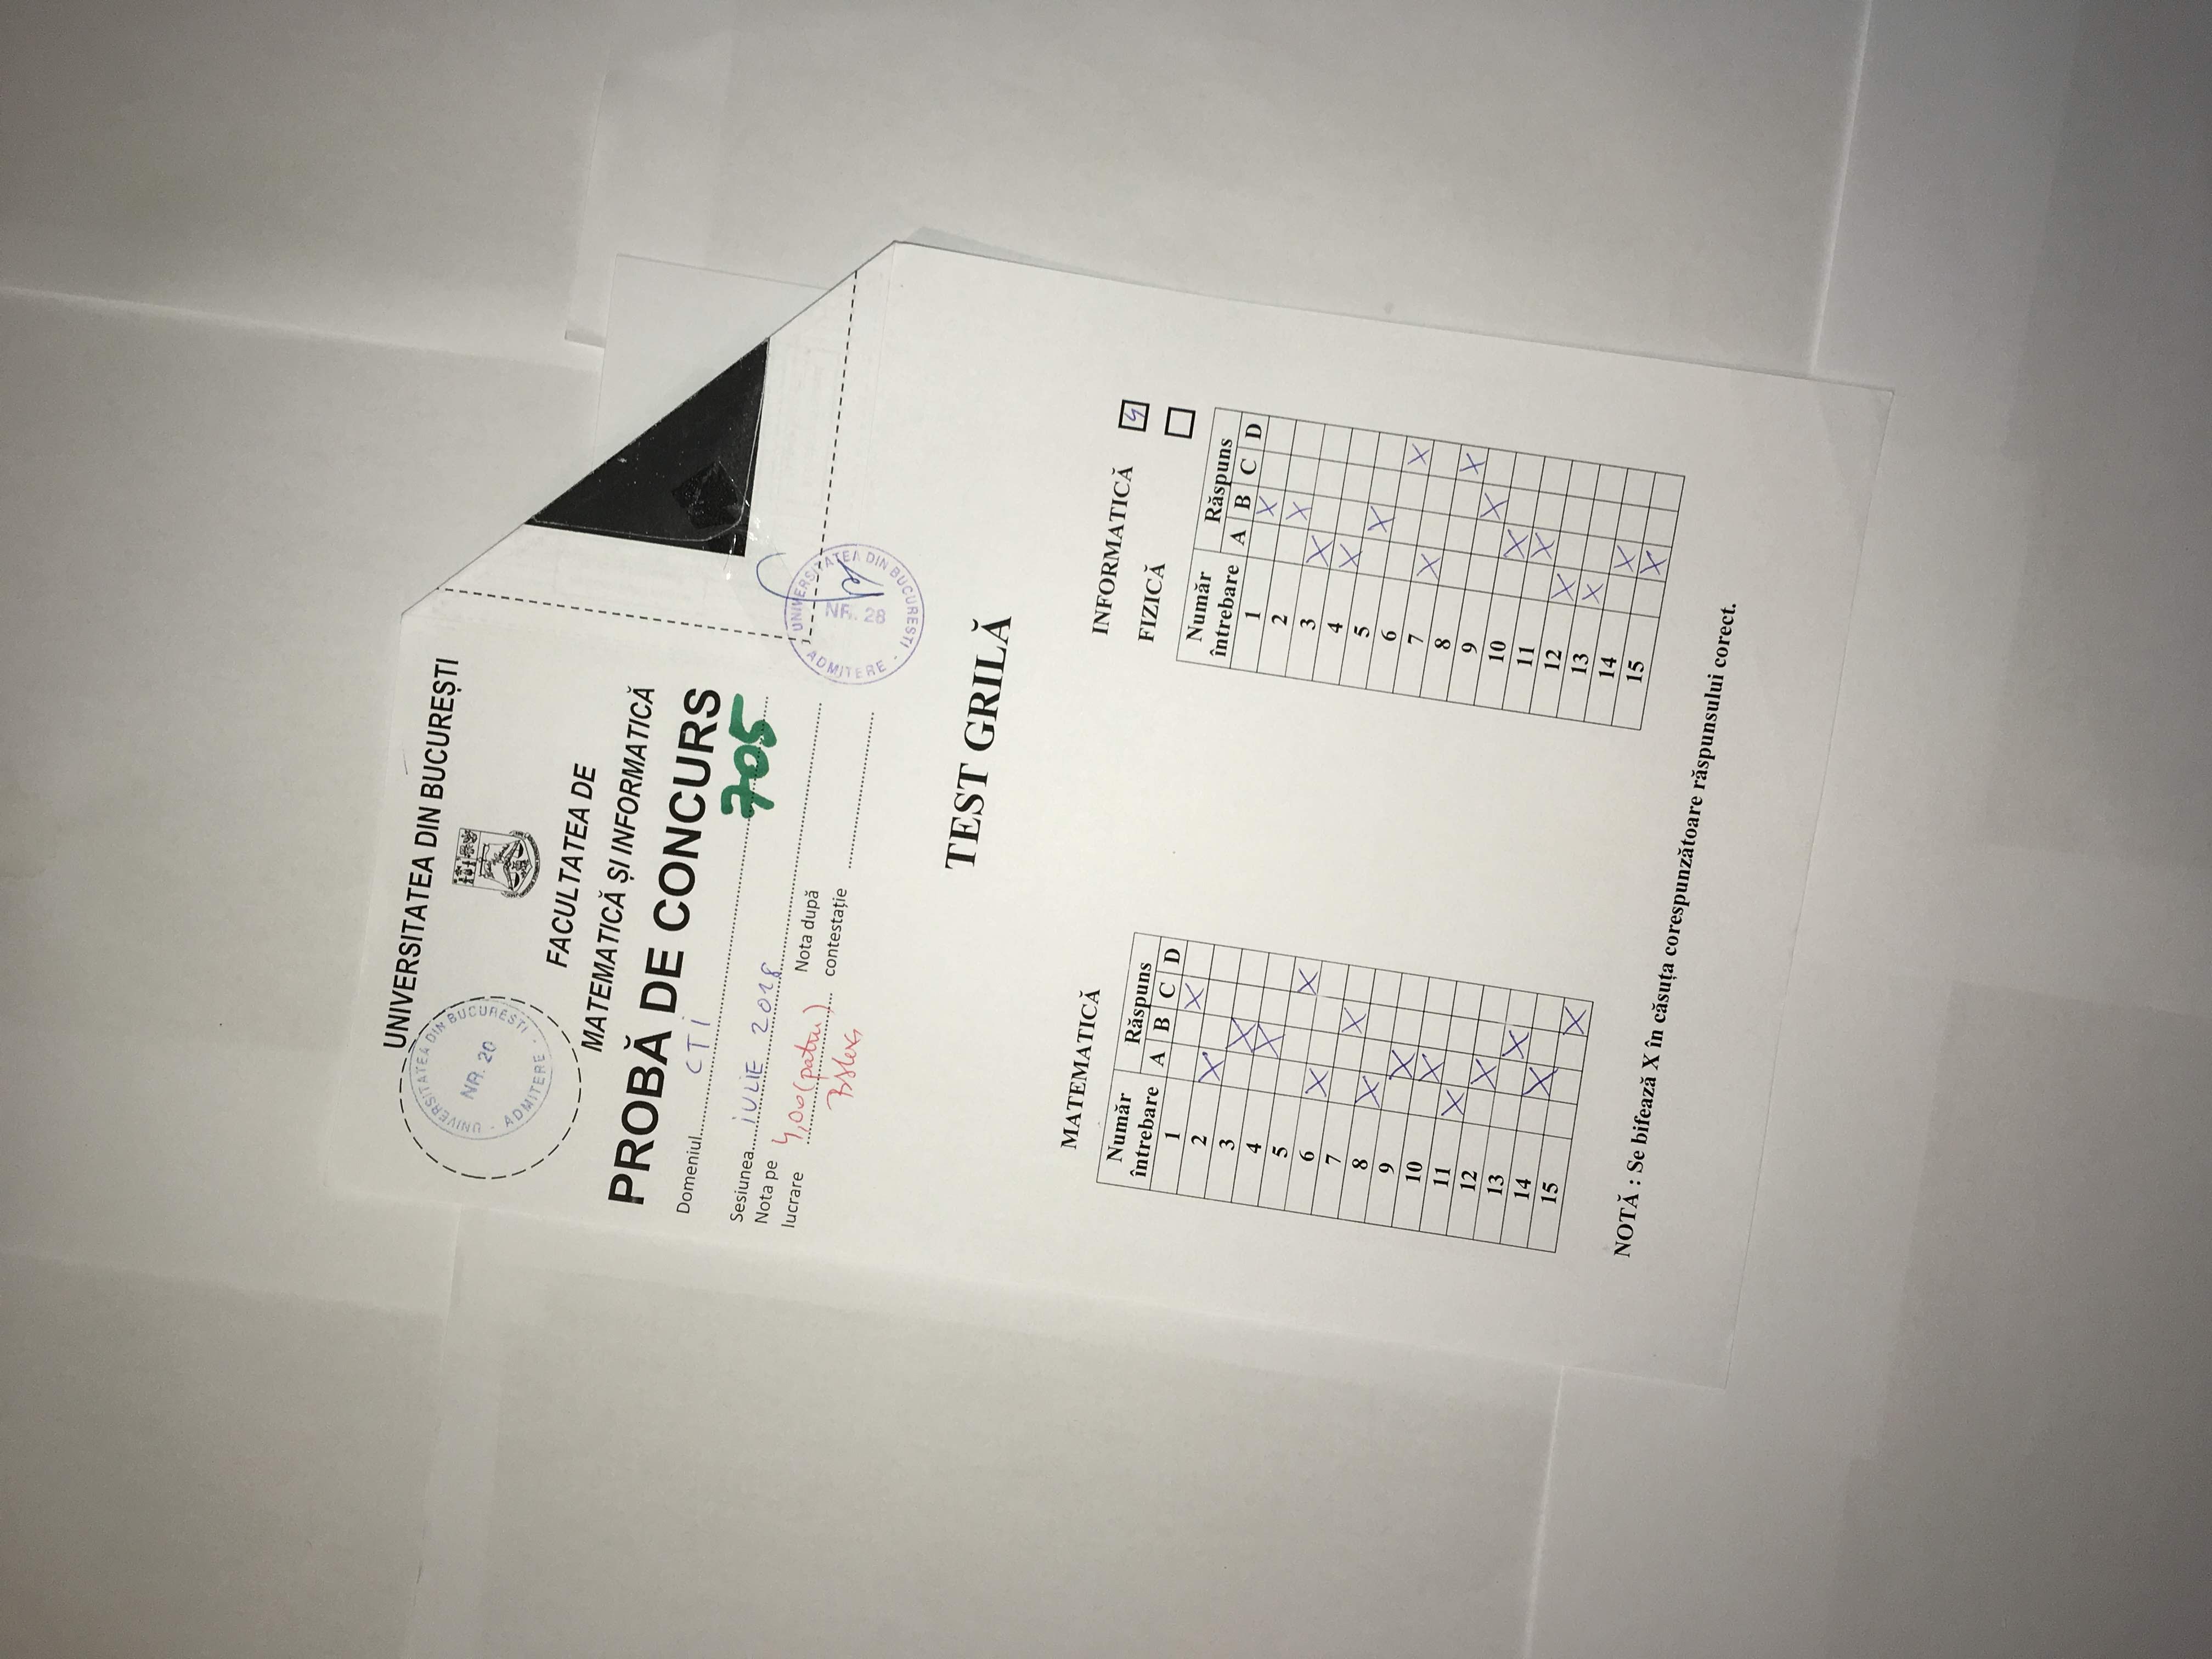 UNIVERSITATEA DIN BUCUREȘTI
UNIVERSITATEA DIN BUCURESTI - ADMITERE -
NR. 20
FACULTATEA DE
MATEMATICĂ ȘI INFORMATICĂ
PROBĂ DE CONCURS
Domeniul CTI
705
Sesiunea IULIE 2018
Nota pe lucrare 4,00 (patru)
Nota după contestație
UNIVERSITATEA DIN BUCURESTI - ADMITERE -
NR. 28
TEST GRILĂ
MATEMATICĂ
Număr întrebare Răspuns
A B C D
1 X
2 X
3 X
4 X
5 X
6 X
7 X
8 X
9 X
10 X
11 X
12 X
13 X
14 X
15 X
INFORMATICĂ 4
FIZICĂ
Număr întrebare Răspuns
A B C D
1 X
2 X
3 X
4 X
5 X
6 X
7 X
8 X
9 X
10 X
11 X
12 X
13 X
14 X
15 X
NOTĂ : Se bifează X în căsuța corespunzătoare răspunsului corect.